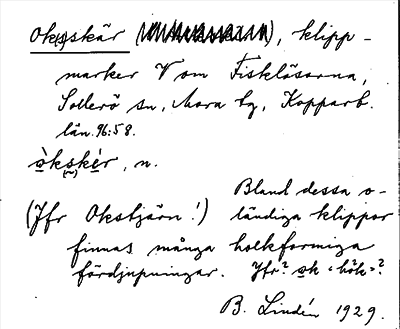 Ok(s)skär (), klipp-
marker V om Fisklösarna,
Sollerö sn, Mora tg, Kopparb.
län. 96:58.
òkskér, n.
(~)
Bland dessa o-
(Jfr Okstjärn!) ländiga klippor
finnas många holkformiga
fördjupningar. Jfr? ok "hök"?
B. Lindén 1929.